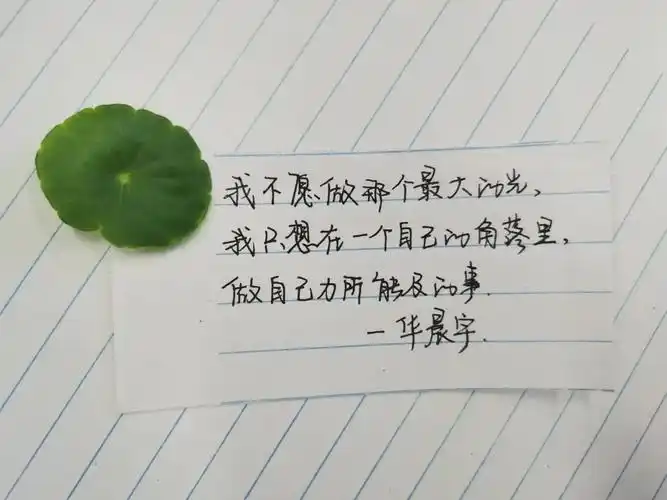 我不愿做那个最大的光,
我只想在一个自己的角落里,
做自己力所能及的事.
一华晨宇.